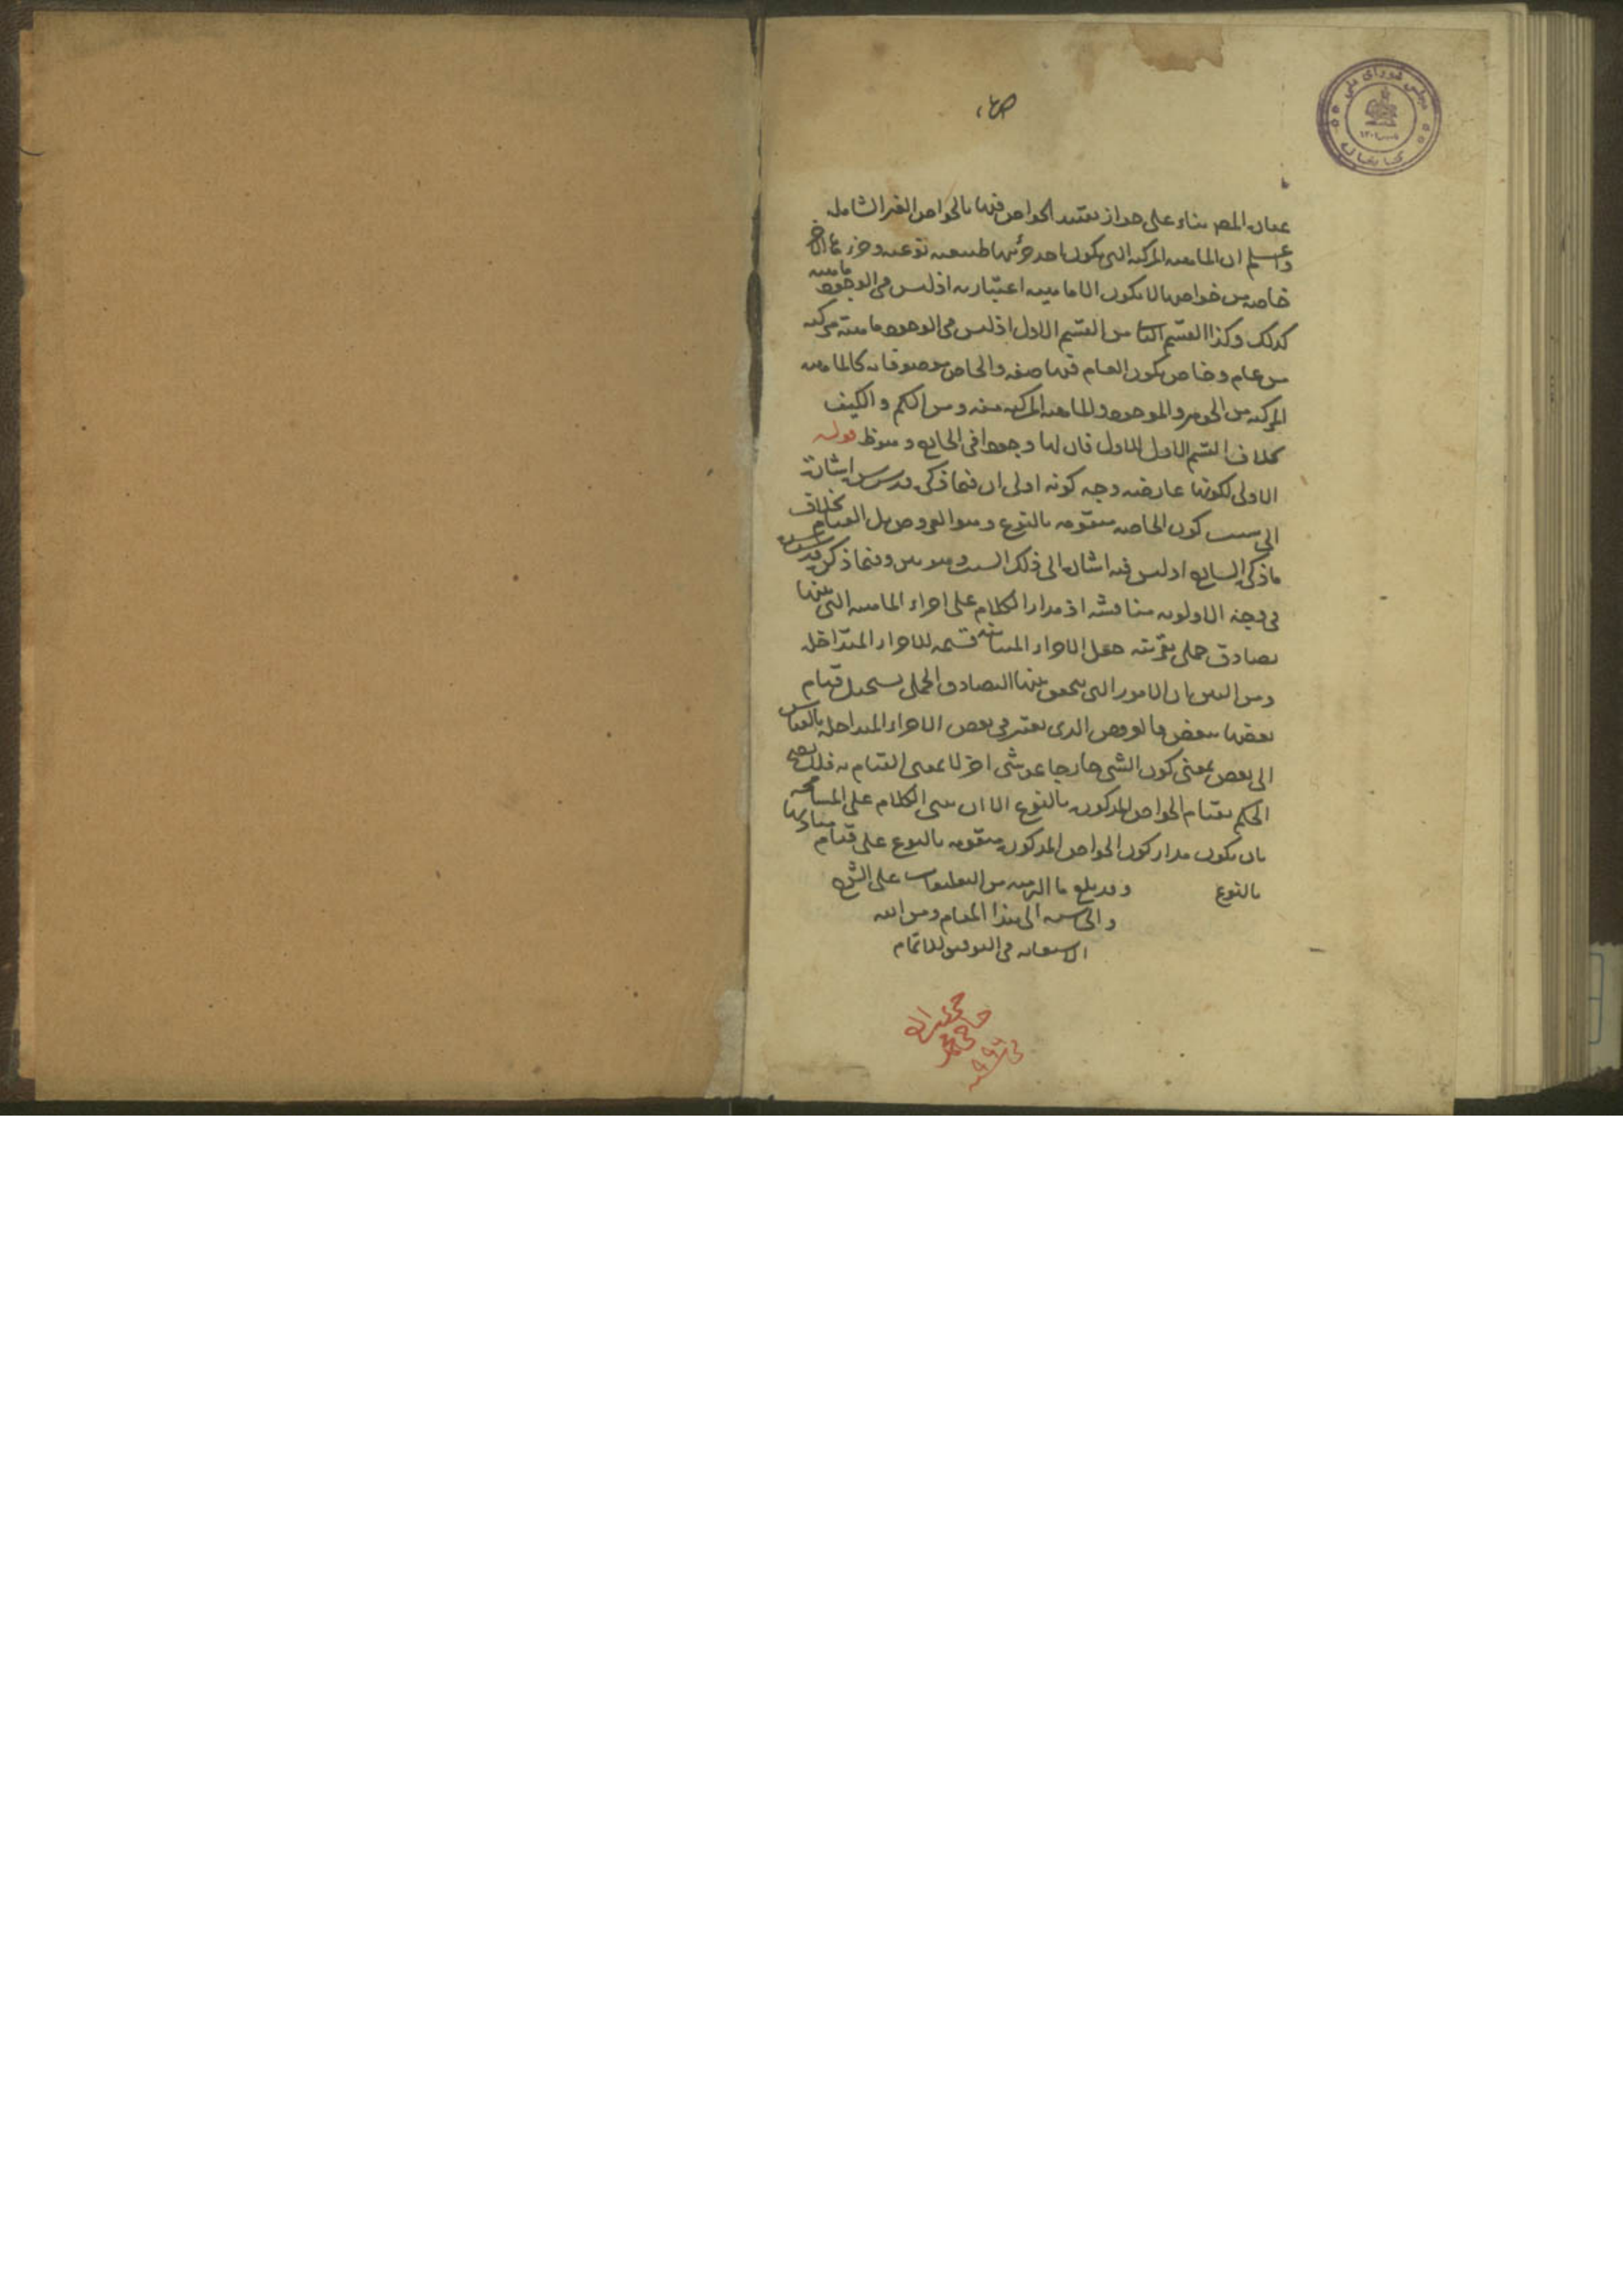 مجلس شورای ملی
کتابخانه
عبارة المص بناء على جواز تقييد الخواص فيها بالخواص الغير الشاملة
واعلم ان الماهية المركبة التي يكون احد جزئيها طبيعية نوعية وجزءها الآخر
خاصة من خواصها لا يكون الا ماهية اعتبارية اذ ليس في الوجود ماهية
كذلك وكذا القسم الثانى من القسم الاول اذ ليس في الوجود ماهية مركبة
من عام وخاص يكون العام فيها صفة والخاص موصوفا به كالماهية
المركبة من الجوهر والموجود والماهية المركبة منه ومن الكم والكيف
بخلاف القسم الاول للاول فان لها وجودا في الخارج وهو ظ قوله
الاولى لكونها عارضة وجه كونه اولى ان فيما ذكره قدس سره اشارة
الى سبب كون الخاصة متقومة بالنوع وهو العروض بل القيام بخلاف
ماذكره الشارح اذ ليس فيه اشارة الى ذلك السبب وهو بين وفيما ذكره قدس سره
في وجه الاولوية مناقشة اذ مدار الكلام على اجزاء الماهية التي بينها
تصادق حملى بقرينة جعل الاجزاء المتباينة قسيمة للاجزاء المتداخلة
ومن البين ان الامور التي يتحقق بينها التصادق الحملى يستحيل قيام
بعضها ببعض فالعروض الذى يعتبر في بعض الاجزاء المتداخلة بالقياس
الى بعض بمعنى كون الشئ خارجا عن شئ اخر لا بمعنى القيام به فلا يصح
الحكم بقيام الخواص المذكورة بالنوع الا ان يبنى الكلام على المسامحة
بان يكون مدار كون الخواص المذكورة متقومة بالنوع على قيام مباديها
بالنوع وقد بلغ ما التزمته من التعليقات على الشرح
والحاشية الى هذا المقام ومن الله
الاستعانة في التوفيق للاتمام